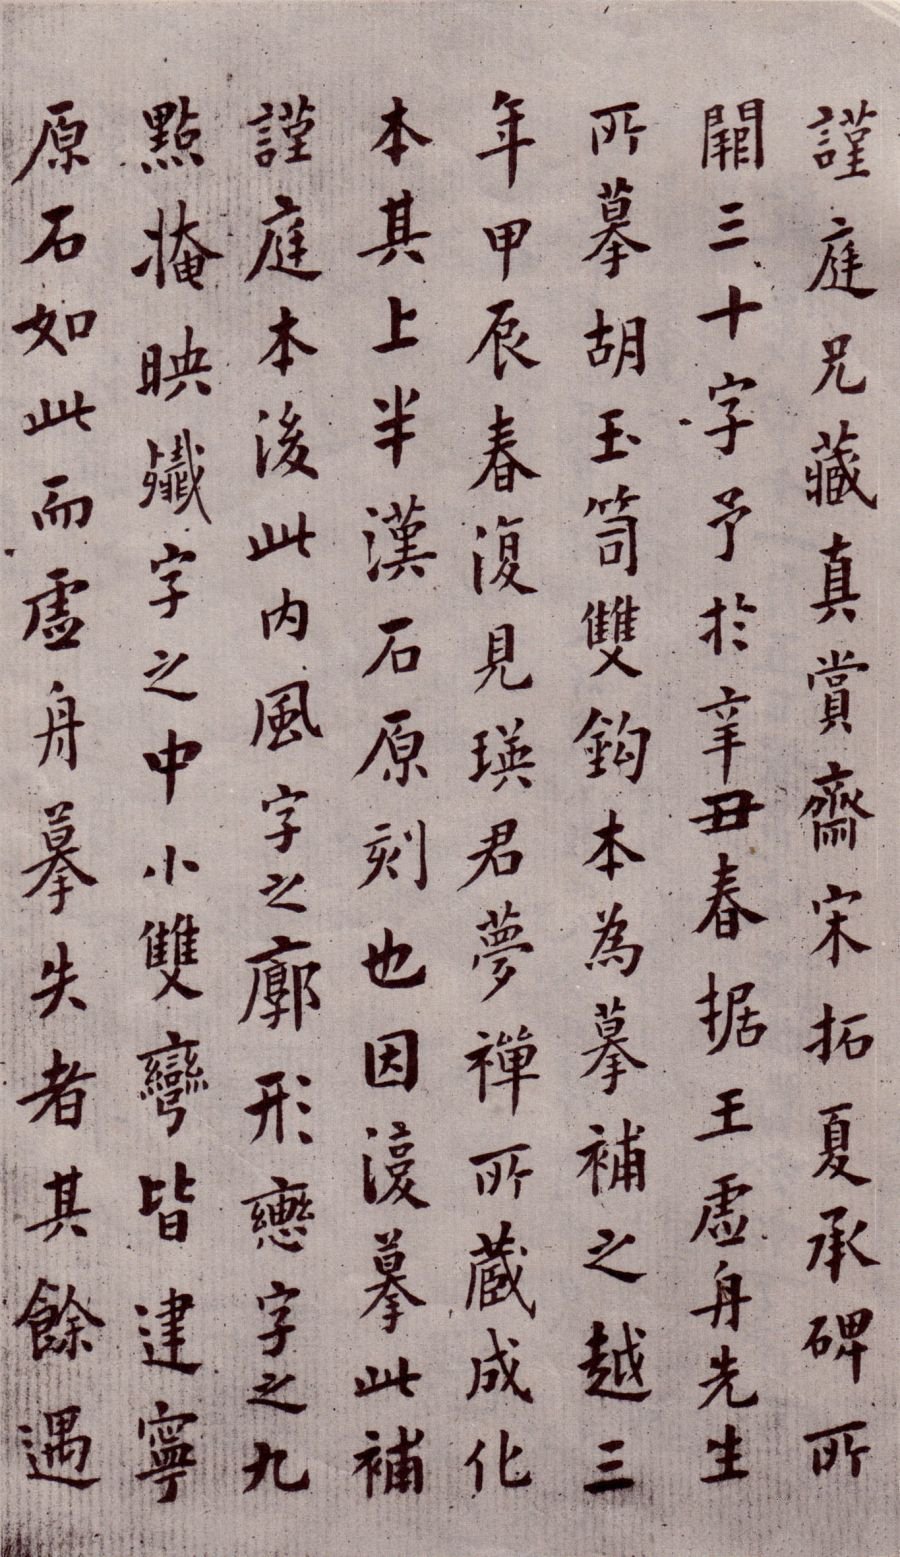 謹庭兄藏真賞齋宋拓夏承碑所
闕三十字予於辛丑春据王虛舟先生
所摹胡玉笥雙鉤本為摹補之越三
年甲辰春復見瑛君夢禪所藏成化
本其上半漢石原刻也因復摹此補
謹庭本後此内風字之廓形戀字之九
點掩映殲字之中小雙彎皆建寧
原石如此而虛舟摹失者其餘遇